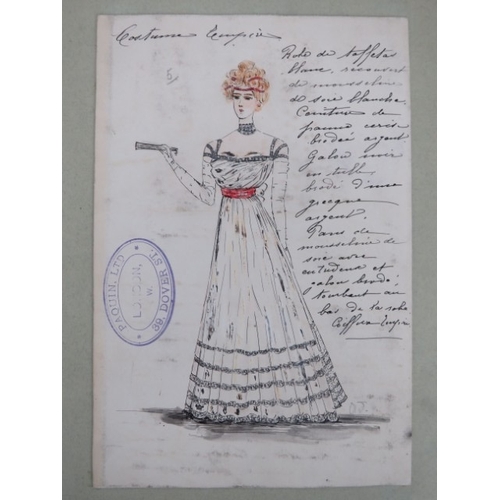 Costume Empire
5
Robe de taffetas
blanc, recouvert
de mousseline
de soie blanche.
Ceinture de
panne cerise
brodée argent
Galon noir
en tulle
brodé d'une
grecque
argent.
Pans de
mousseline de
soie avec
et
galon brodé;
tombant au
bas de la robe
Coiffure Empire
PAQUIN, LTD
LONDON,
W.
39, DOVER ST.